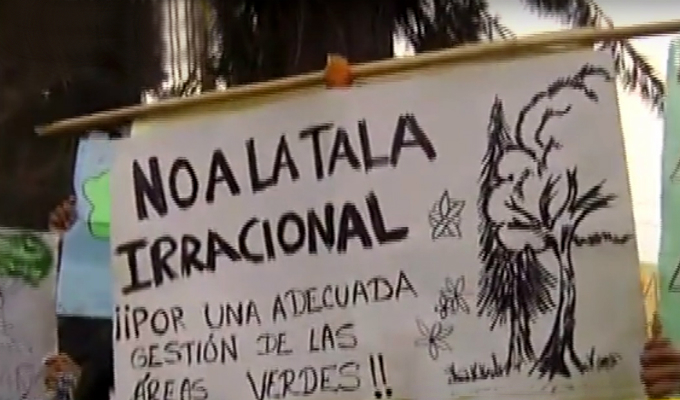 NO A LA TALA
IRRACIONAL
¡¡POR UNA ADECUADA
GESTIÓN DE LAS
ÁREAS VERDES!!